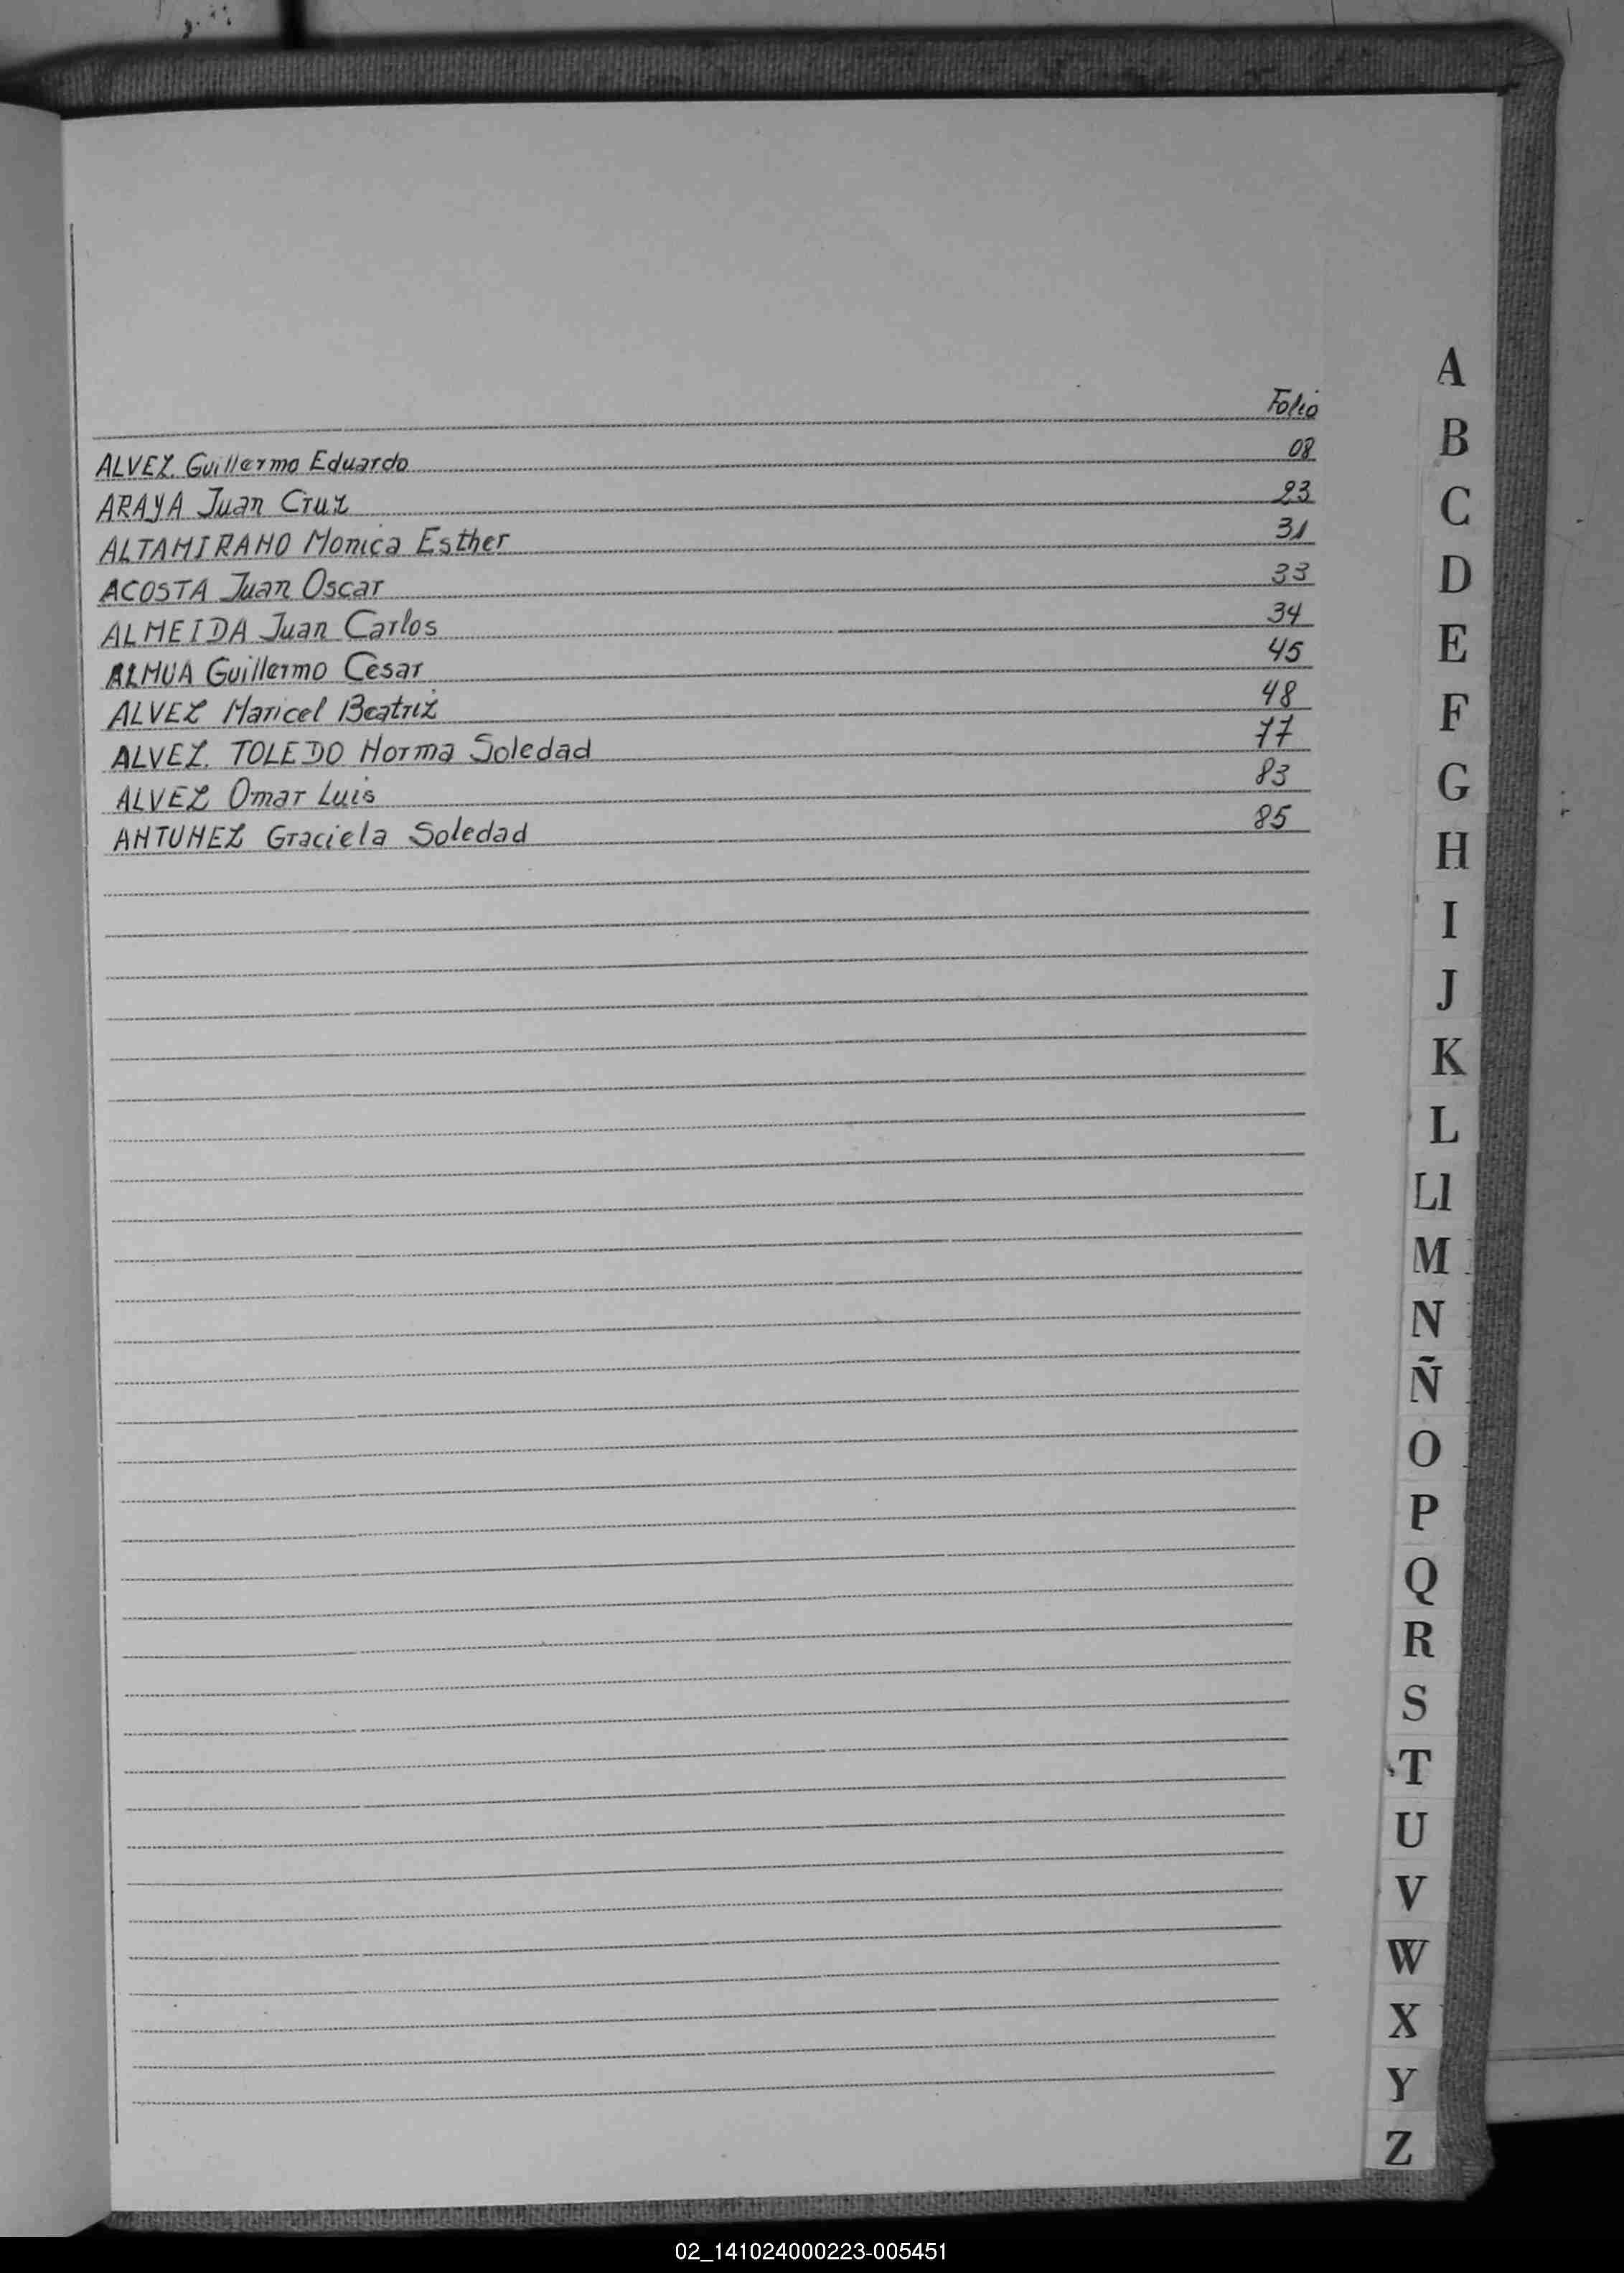 Folio
ALVEZ Guillermo Eduardo 08
ARAYA Juan Cruz 23
ALTAMIRANO Monica Esther 31
ACOSTA Juan Oscar 33
ALMEIDA Juan Carlos 34
ALMUA Guillermo Cesar 45
ALVEZ Maricel Beatriz 48
ALVEZ TOLEDO Norma Soledad 77
ALVEZ Omar Luis 83
ANTUNEZ Graciela Soledad 85
A
B
C
D
E
F
G
H
I
J
K
L
Ll
M
N
Ñ
O
P
Q
R
S
T
U
V
W
X
Y
Z
02_141024000223-005451